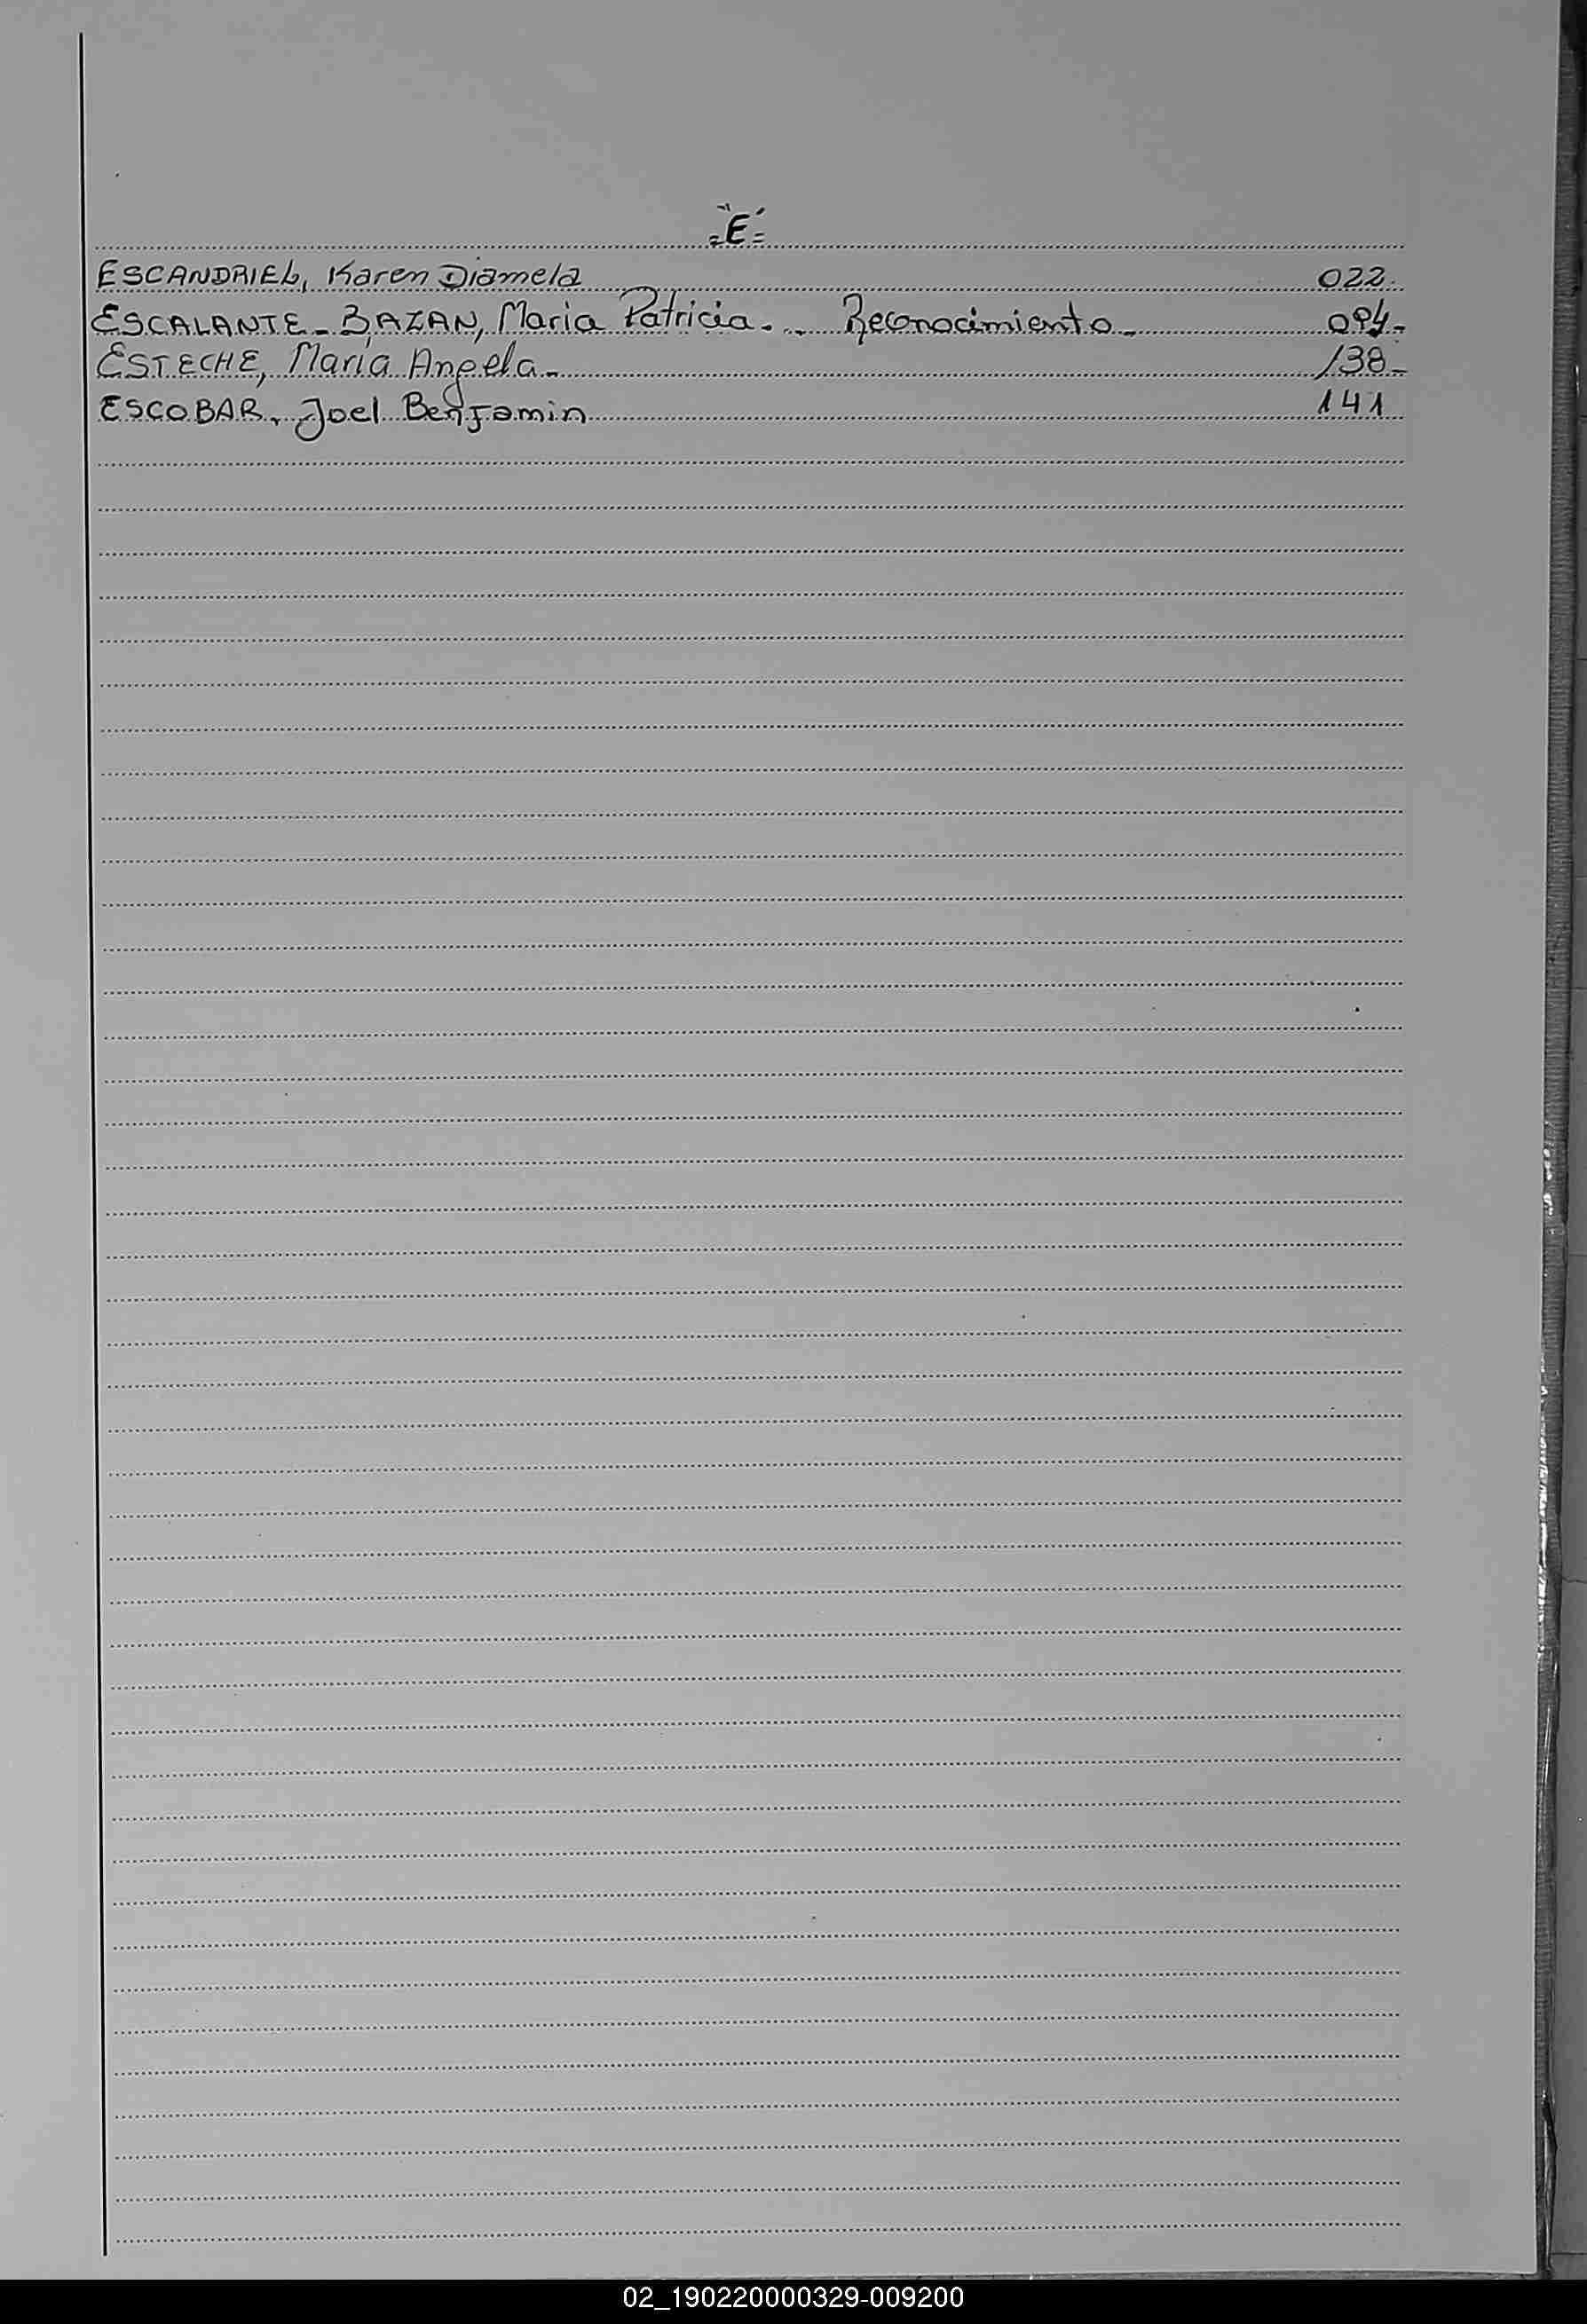 "E"
ESCANDRIEL, Karen Diamela 022.
ESCALANTE - BAZAN, Maria Patricia. - Reconocimiento - 094.-
ESTECHE, María Angela.- 138.-
ESCOBAR, Joel Benjamin 141
02_190220000329-009200